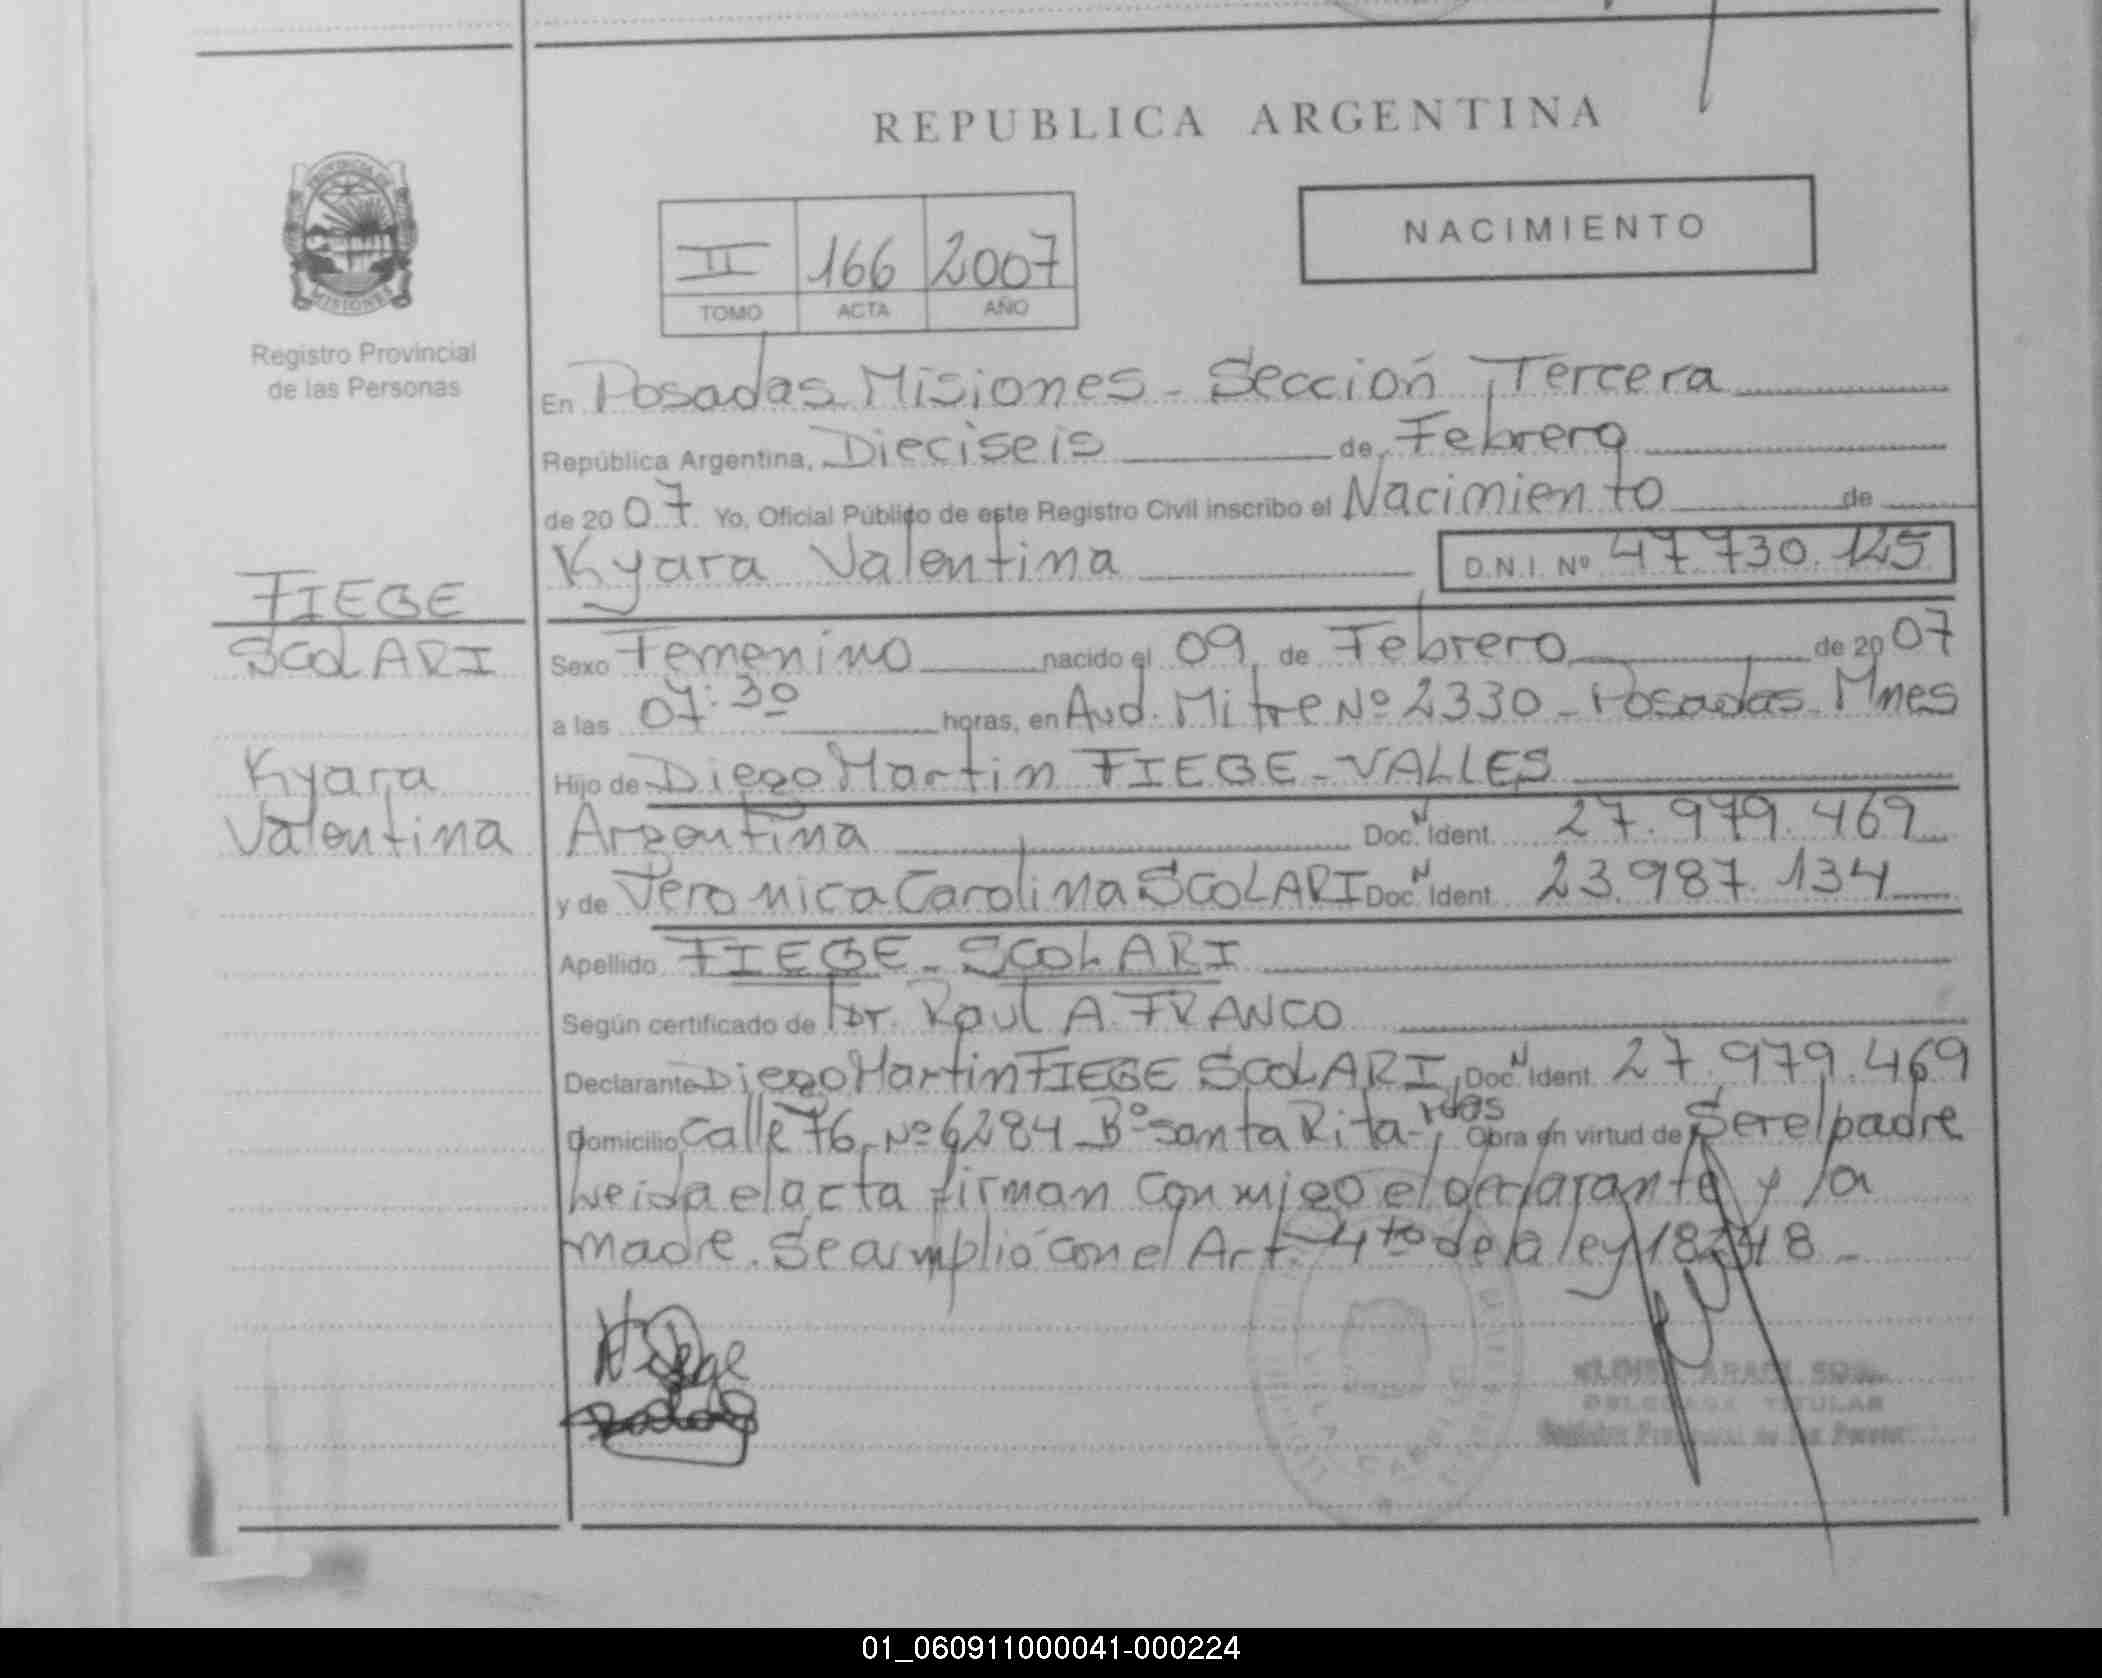 REPUBLICA ARGENTINA
PROVINCIA DE
MISIONES
Registro Provincial
de las Personas
NACIMIENTO
II 166 2007
TOMO ACTA AÑO
En Posadas Misiones - Sección Tercera
República Argentina, Dieciseis de Febrero
de 2007 Yo, Oficial Público de este Registro Civil inscribo el Nacimiento de
Kyara Valentina D.N.I. Nº 47.730.125
FIEGE
SCOLARI
Kyara
Valentina
Sexo Femenino nacido el 09 de Febrero de 2007
a las 07:30 horas, en Avd. Mitre Nº 2330 - Posadas Mnes
Hijo de Diego Martin FIEGE - VALLES
Argentina Doc. N Ident. 27.979.469
y de Veronica Carolina SCOLARI Doc. N Ident. 23.987.134
Apellido FIEGE - SCOLARI
Según certificado de Dr. Raul A. FRANCO
Declarante Diego Martin FIEGE SCOLARI Doc. N Ident. 27.979.469
Domicilio Calle 76 Nº 6284 Bº Santa Rita - Pdas Obra en virtud de Ser el padre
Leida el acta firman conmigo el declarante y la
madre. Se amplió con el Art. 4to de la ley 18248 -
DELEGADA TITULAR
Registro Provincial de las Personas
01_060911000041-000224